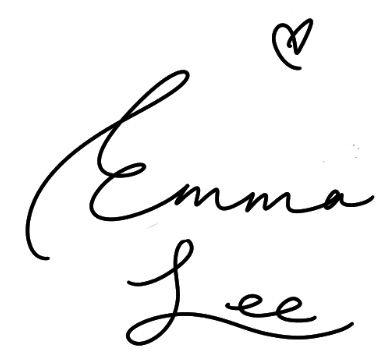 Emma
Lee